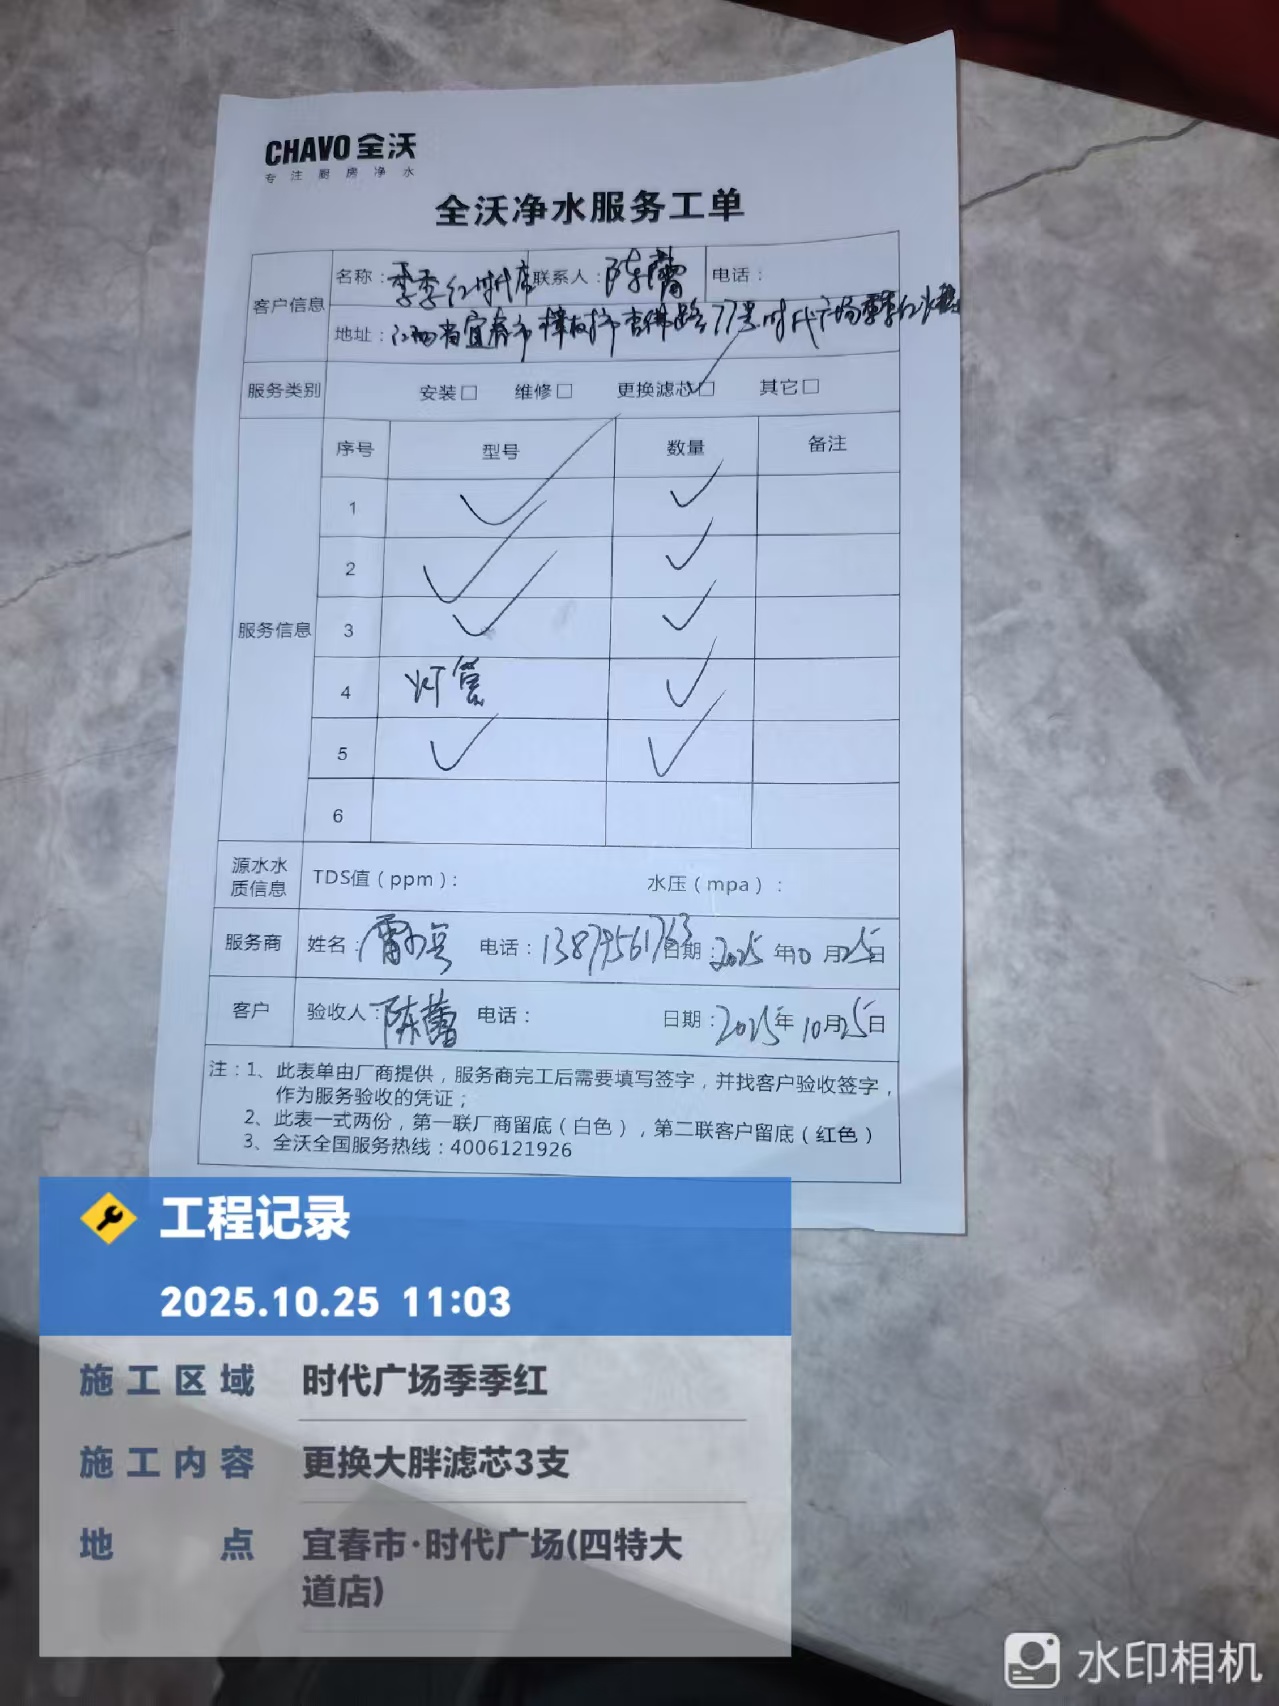 CHAVO 全沃
专注厨房净水
全沃净水服务工单
客户信息 名称：季季红时代店 联系人：陈蕾 电话：
地址：江西省宜春市樟树市杏佛路77号时代广场季季红火锅
服务类别 安装□ 维修□ 更换滤芯☑ 其它□
服务信息 序号 型号 数量 备注
1 ✓ ✓
2 ✓ ✓
3 ✓ ✓
4 灯管 ✓
5 ✓ ✓
6
源水水质信息 TDS值（ppm）： 水压（mpa）：
服务商 姓名： 电话：13879561763 日期：2025年10月25日
客户 验收人：陈蕾 电话： 日期：2025年10月25日
注：1、此表单由厂商提供，服务商完工后需要填写签字，并找客户验收签字，
作为服务验收的凭证；
2、此表一式两份，第一联厂商留底（白色），第二联客户留底（红色）
3、全沃全国服务热线：4006121926
工程记录
2025.10.25 11:03
施工区域 时代广场季季红
施工内容 更换大胖滤芯3支
地点 宜春市·时代广场(四特大
道店)
水印相机